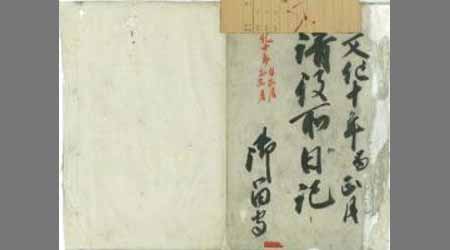 文化十年酉正月
諸役所日記
御留守